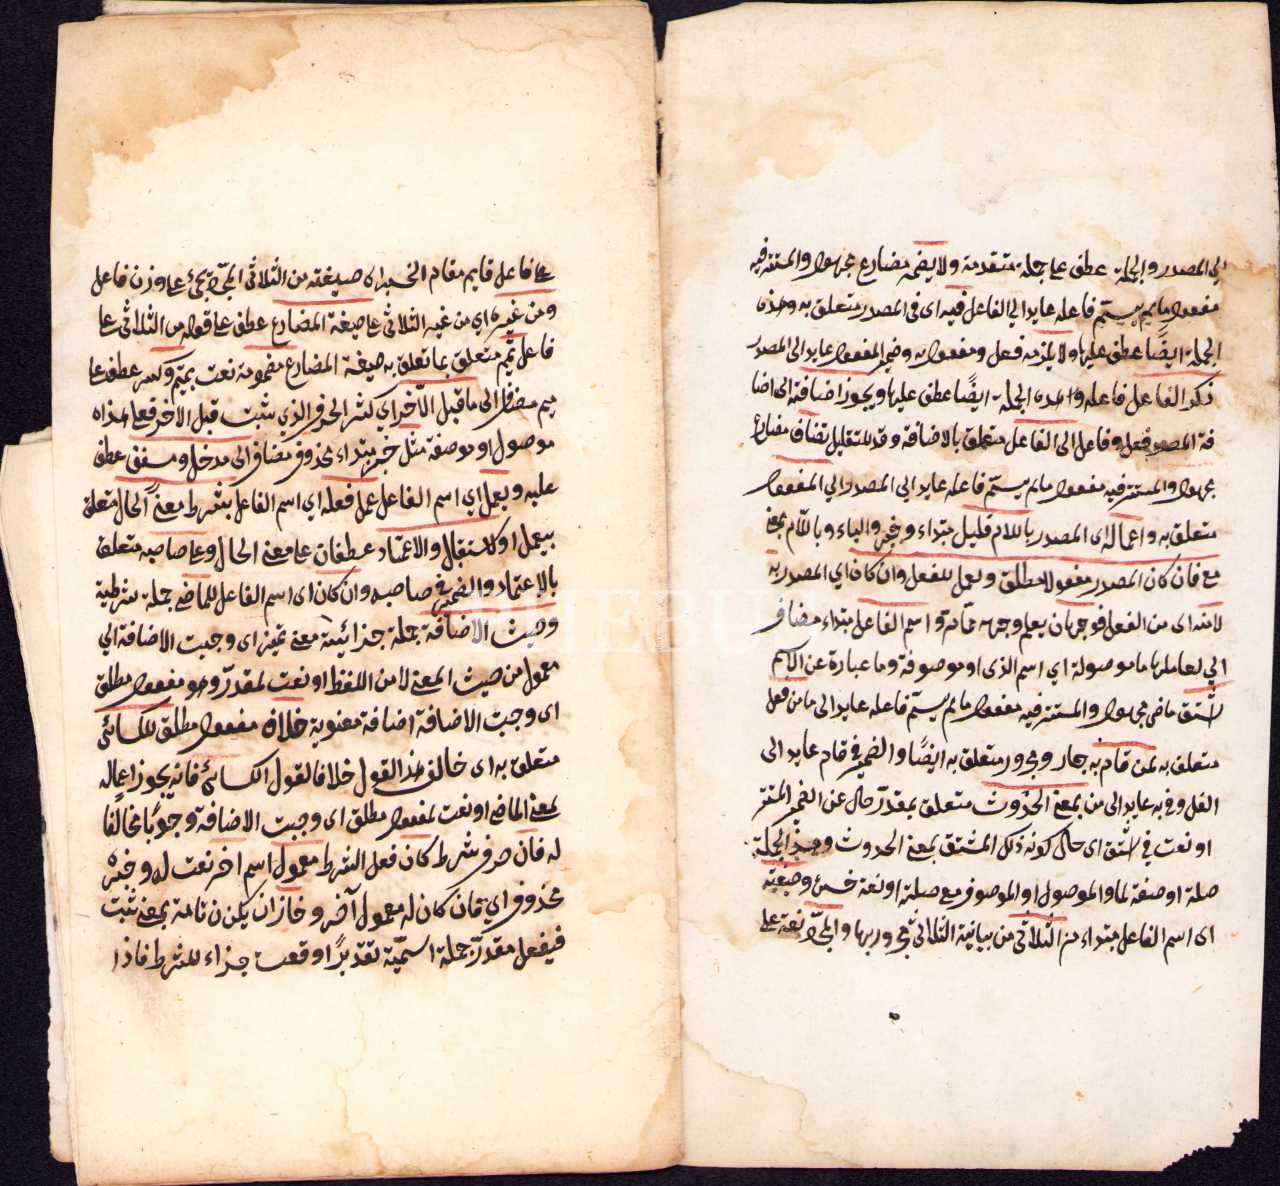 الي المصدر والجملة عطف على جملة متقدمة ولا يضمر مضارع مجهول والمستتر فيه
مفعول مالم يسمّ فاعله عايد الي الفاعل فيه اى فى المصدر متعلق به وهذه
الجملة ايضًا عطف عليها ولا يلزم فعل ومفعول به وضمير المفعول عايد الى المصدر
ذكر الفاعل فاعله وهذه الجملة ايضًا عطف عليها ويجوز اضافته الى اضا
فة المصدر فعل وفاعل الى الفاعل متعلق بالاضافة وقد للتقليل تضاف مضارع
مجهول والمستتر فيه مفعول مالم يسمّ فاعله عايد الى المصدر الي المفعول
متعلق به واعماله اى المصدر باللام قليل مبتداء وخبر والباء وباللام بمعنى
مع فان كان المصدر مفعولا مطلق وليعمل للفعل وان كان اي المصدر به
لا منه اى من الفعل فوجهان يعلم وجهه ممّا مرّ واسم الفاعل مبتداء مضاف
الي لعاملها ما موصولة اي اسم الذى او موصوفة وما عبارة عن الاسم
اشتق ماض مجهول والمستتر فيه مفعول مالم يسمّ فاعله عايد الى ما من فعل
متعلق به لمن قام به جار ومجرور متعلق به ايضًا والضمير فى قام عايد الى
الفعل وفى به عايد الى من بمعنى الحدوث متعلق بمقدّر حال عن الضمير المستتر
او نعت في اشتق اى حال كونه ذلك المشتق بمعنى الحدوث وهذه الجملة
صلة او صفة لما والموصول او الموصوف مع صلة او نعته خبره وصيغته
اى اسم الفاعل مبتداء من الثلاثى من بيانية الثلاثى مجرور بها والمجرّد نعته على
على فاعل قايم مقام الخبر اى صيغته من الثلاثى المجرّد يجئ على وزن فاعل
ومن غيره اي من غير الثلاثى على صيغة المضارع عطف على قوله من الثلاثى على
فاعل بميم متعلق بما تعلق به صيغة المضارع مضمومة نعت بميم وكسر عطف على
ميم مضاف الى ما قبل الآخر اي كسر الحرف الذي يثبت قبل الآخر فعلى هذا ما
موصول او موصوفة مثل خبر مبتداء محذوف مضاف الى مدخل ومستفق عطف
عليه ويعمل اي اسم الفاعل عمل فعله اي اسم الفاعل بشرط معنى الحال متعلق
بيعمل او الاستقبال والاعتماد عطفان على معنى الحال وعلى صاحبه متعلق
بالاعتماد والضمير فى صاحبه وان كان اى اسم الفاعل للماضى جملة شرطية
وجبت الاضافة جملة جزائية معنى تميز اى وجبت الاضافة الي
معمول من حيث المعنى لا من اللفظ او نعت لمقدّر وهو مفعول مطلق
اى وجبت الاضافة اضافة معنوية خلافا مفعول مطلق للكسائى
متعلق به اى خالف هذا القول خلافا لقول الكسائى فانه يجوز اعماله
بمعنى الماضى او نعت لمفعول مطلق اى وجبت الاضافة وجوبًا مخالفا
له فان حرف شرط كان فعل الشرط معمول اسم اخر نعت له وخبره
محذوف اي فان كان له معمول آخر وجاز ان يكون تامة بمعنى ثبت
فبفعل مقدّر جملة اسميّة تقديرًا وقعت جزاء للشرط فاذا